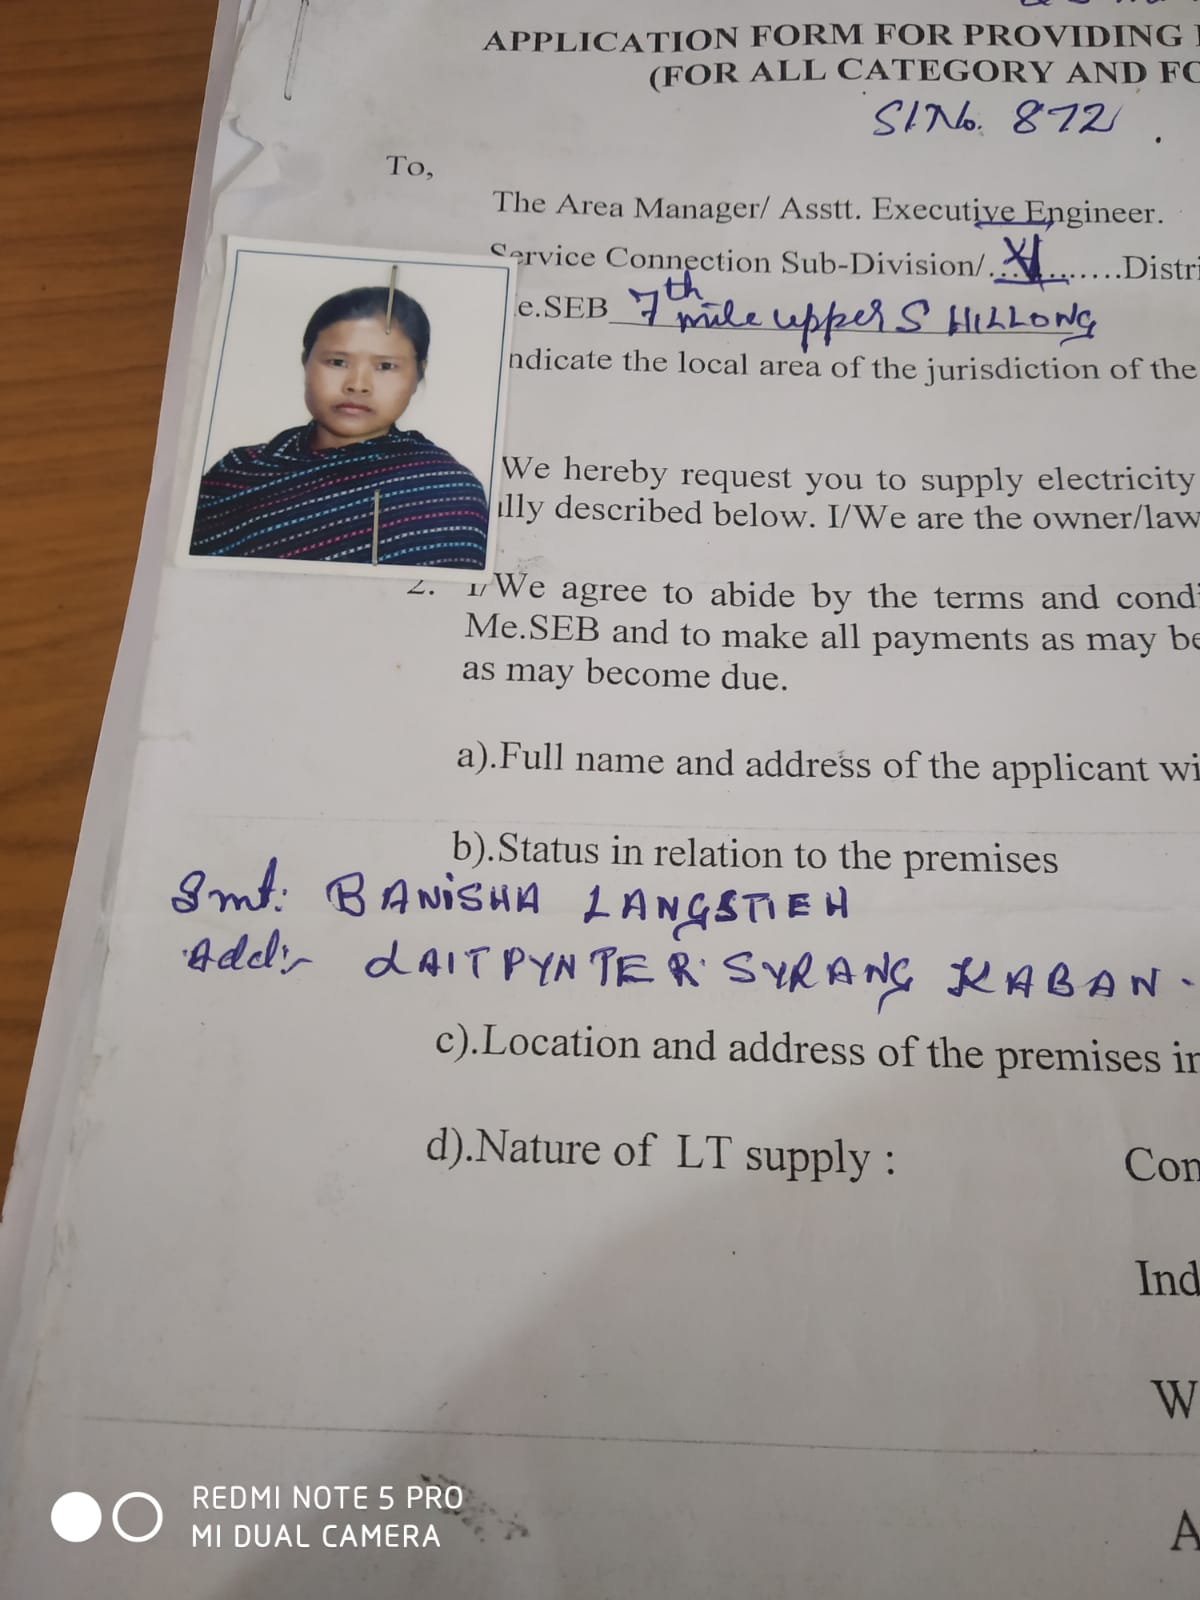 APPLICATION FORM FOR PROVIDING
(FOR ALL CATEGORY AND FO
Sl No. 872
To,
The Area Manager/ Asstt. Executive Engineer.
Service Connection Sub-Division/...........Distri
e.SEB 7th mile upper SHILLONG
ndicate the local area of the jurisdiction of the
We hereby request you to supply electricity
lly described below. I/We are the owner/law
2. I/We agree to abide by the terms and condi
Me.SEB and to make all payments as may be
as may become due.
a).Full name and address of the applicant wi
b).Status in relation to the premises
Smt: BANISHA LANGSTIEH
Add:- LAITPYNTER SYRANG KABAN -
c).Location and address of the premises in
d).Nature of LT supply : Con
Ind
W
A
REDMI NOTE 5 PRO
MI DUAL CAMERA